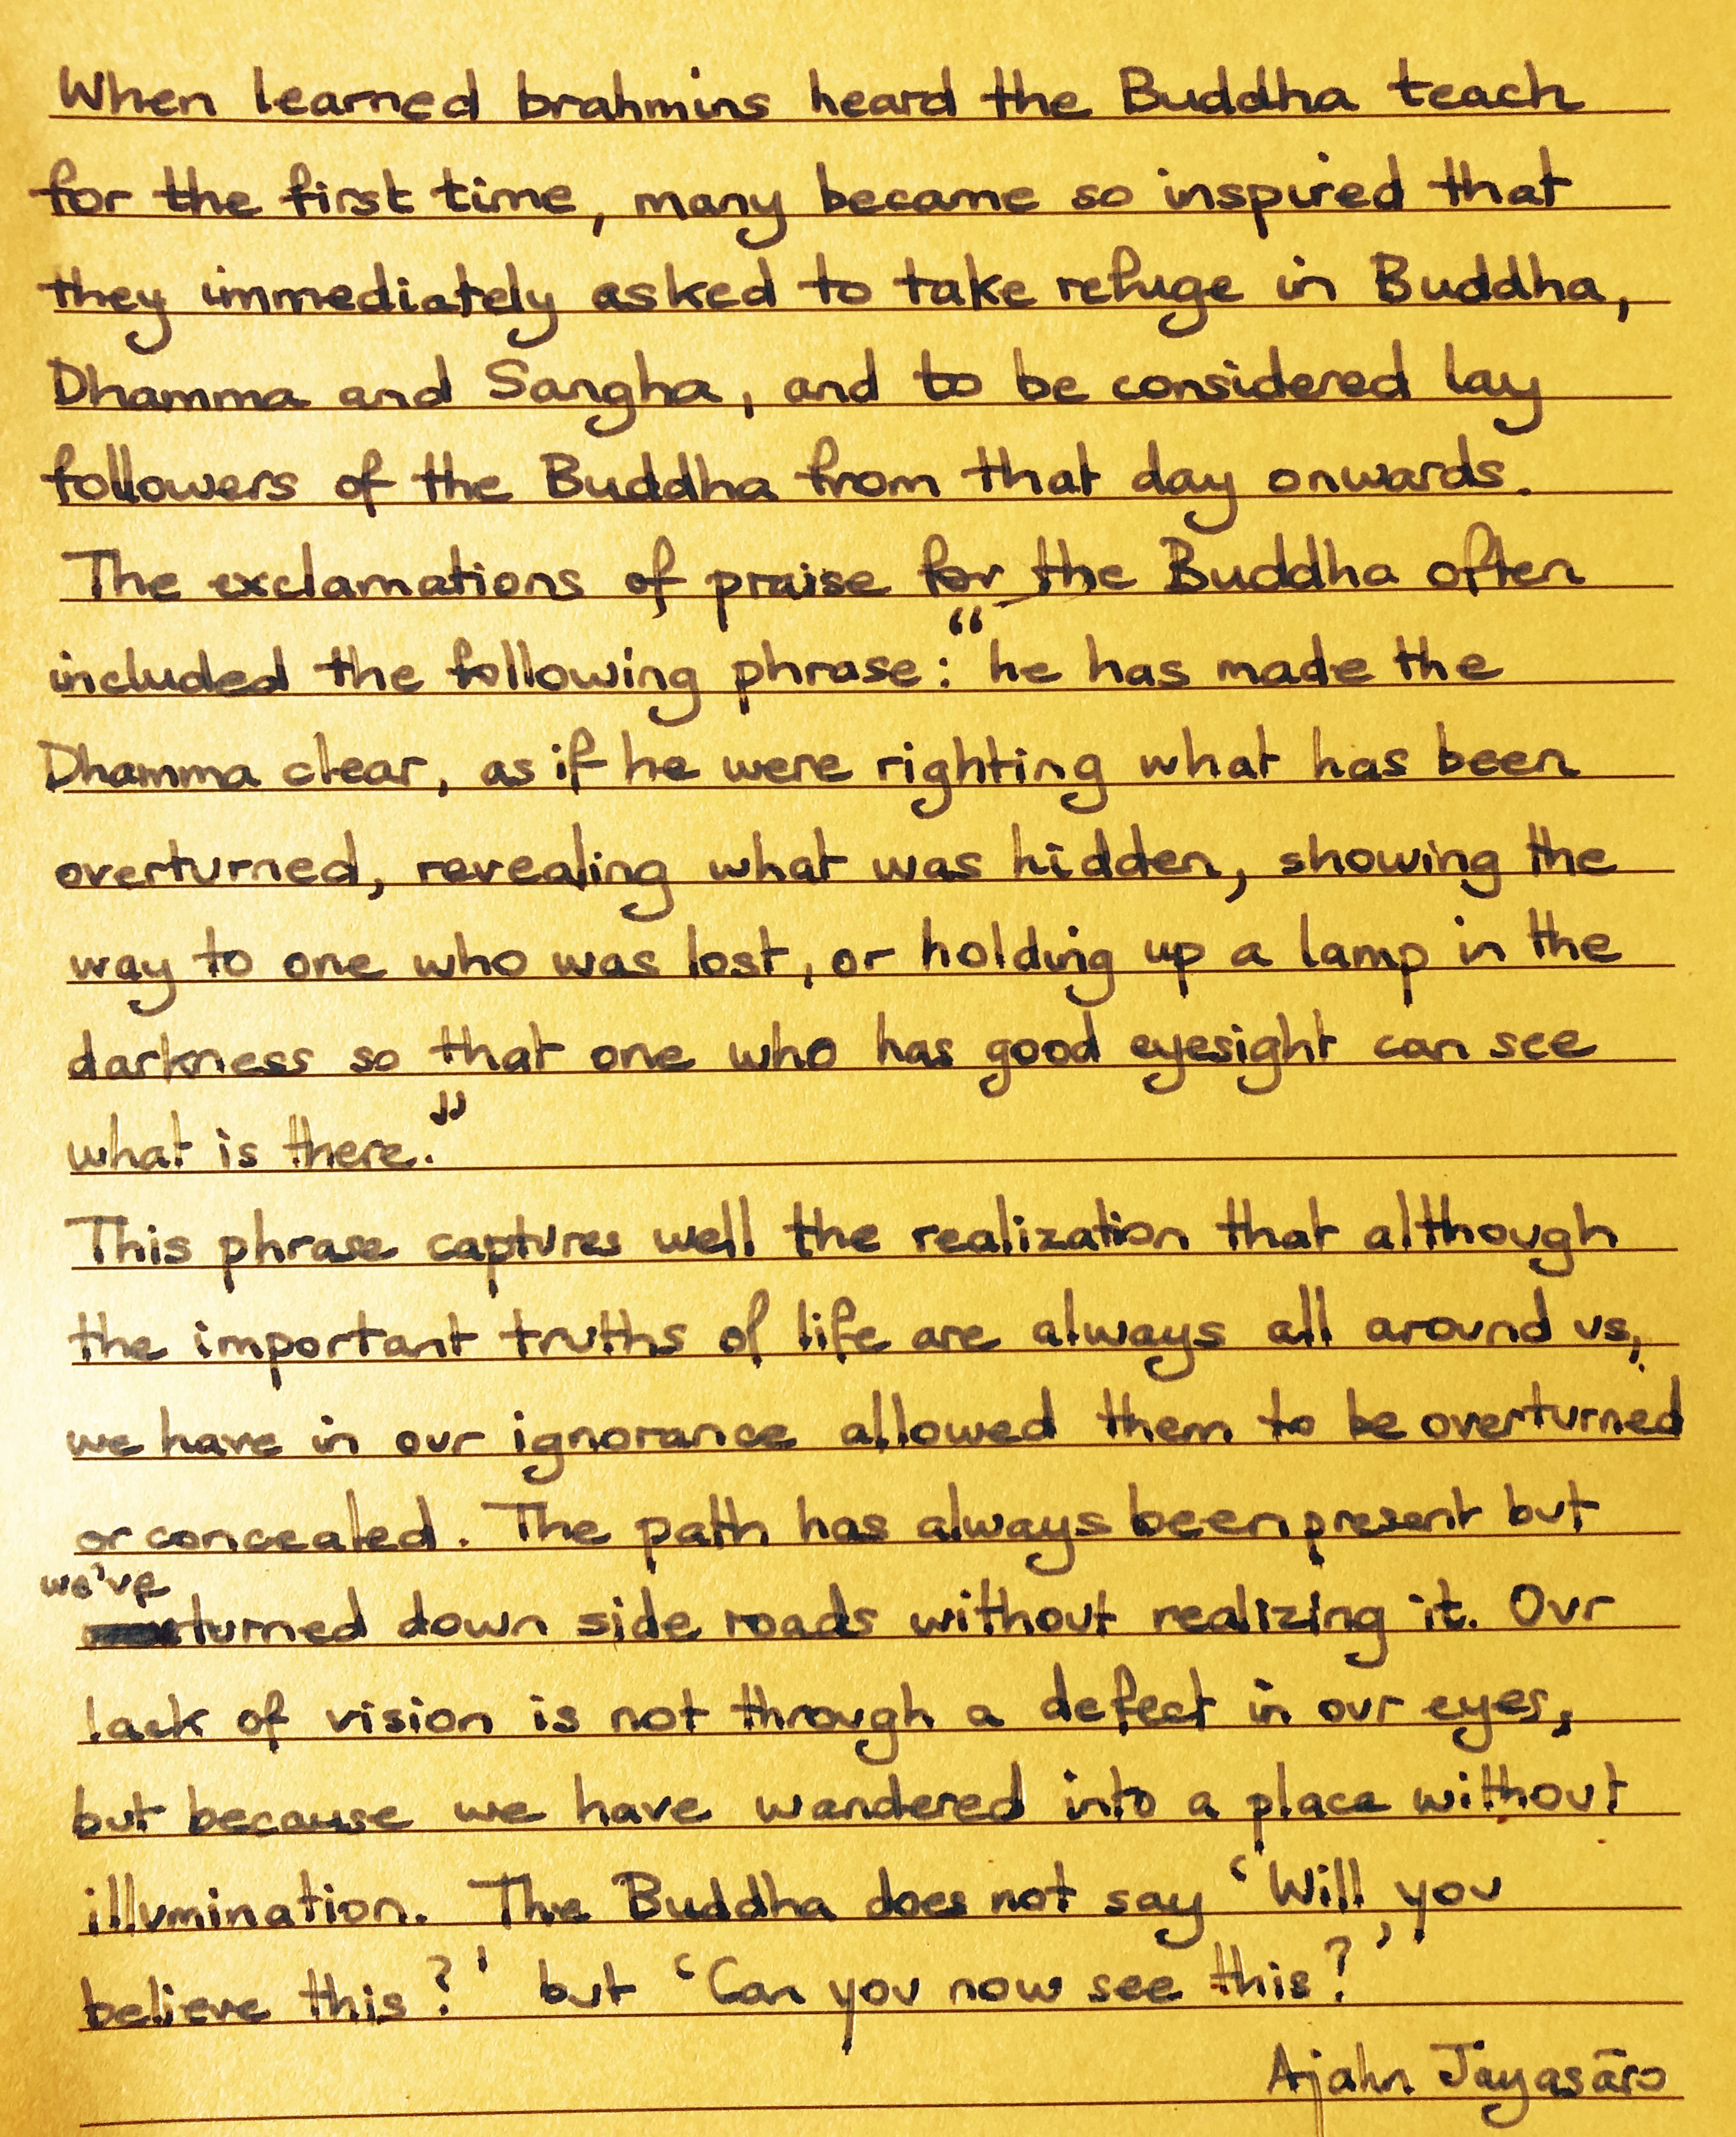 When learned brahmins heard the Buddha teach
for the first time, many became so inspired that
they immediately asked to take refuge in Buddha,
Dhamma and Sangha, and to be considered lay
followers of the Buddha from that day onwards.
The exclamations of praise for the Buddha often
included the following phrase: “he has made the
Dhamma clear, as if he were righting what has been
overturned, revealing what was hidden, showing the
way to one who was lost, or holding up a lamp in the
darkness so that one who has good eyesight can see
what is there.”
This phrase captures well the realization that although
the important truths of life are always all around us,
we have in our ignorance allowed them to be overturned
or concealed. The path has always been present but
we've turned down side roads without realizing it. Our
lack of vision is not through a defect in our eyes,
but because we have wandered into a place without
illumination. The Buddha does not say ‘Will you
believe this?' but ‘Can you now see this?’
Ajahn Jayasāro